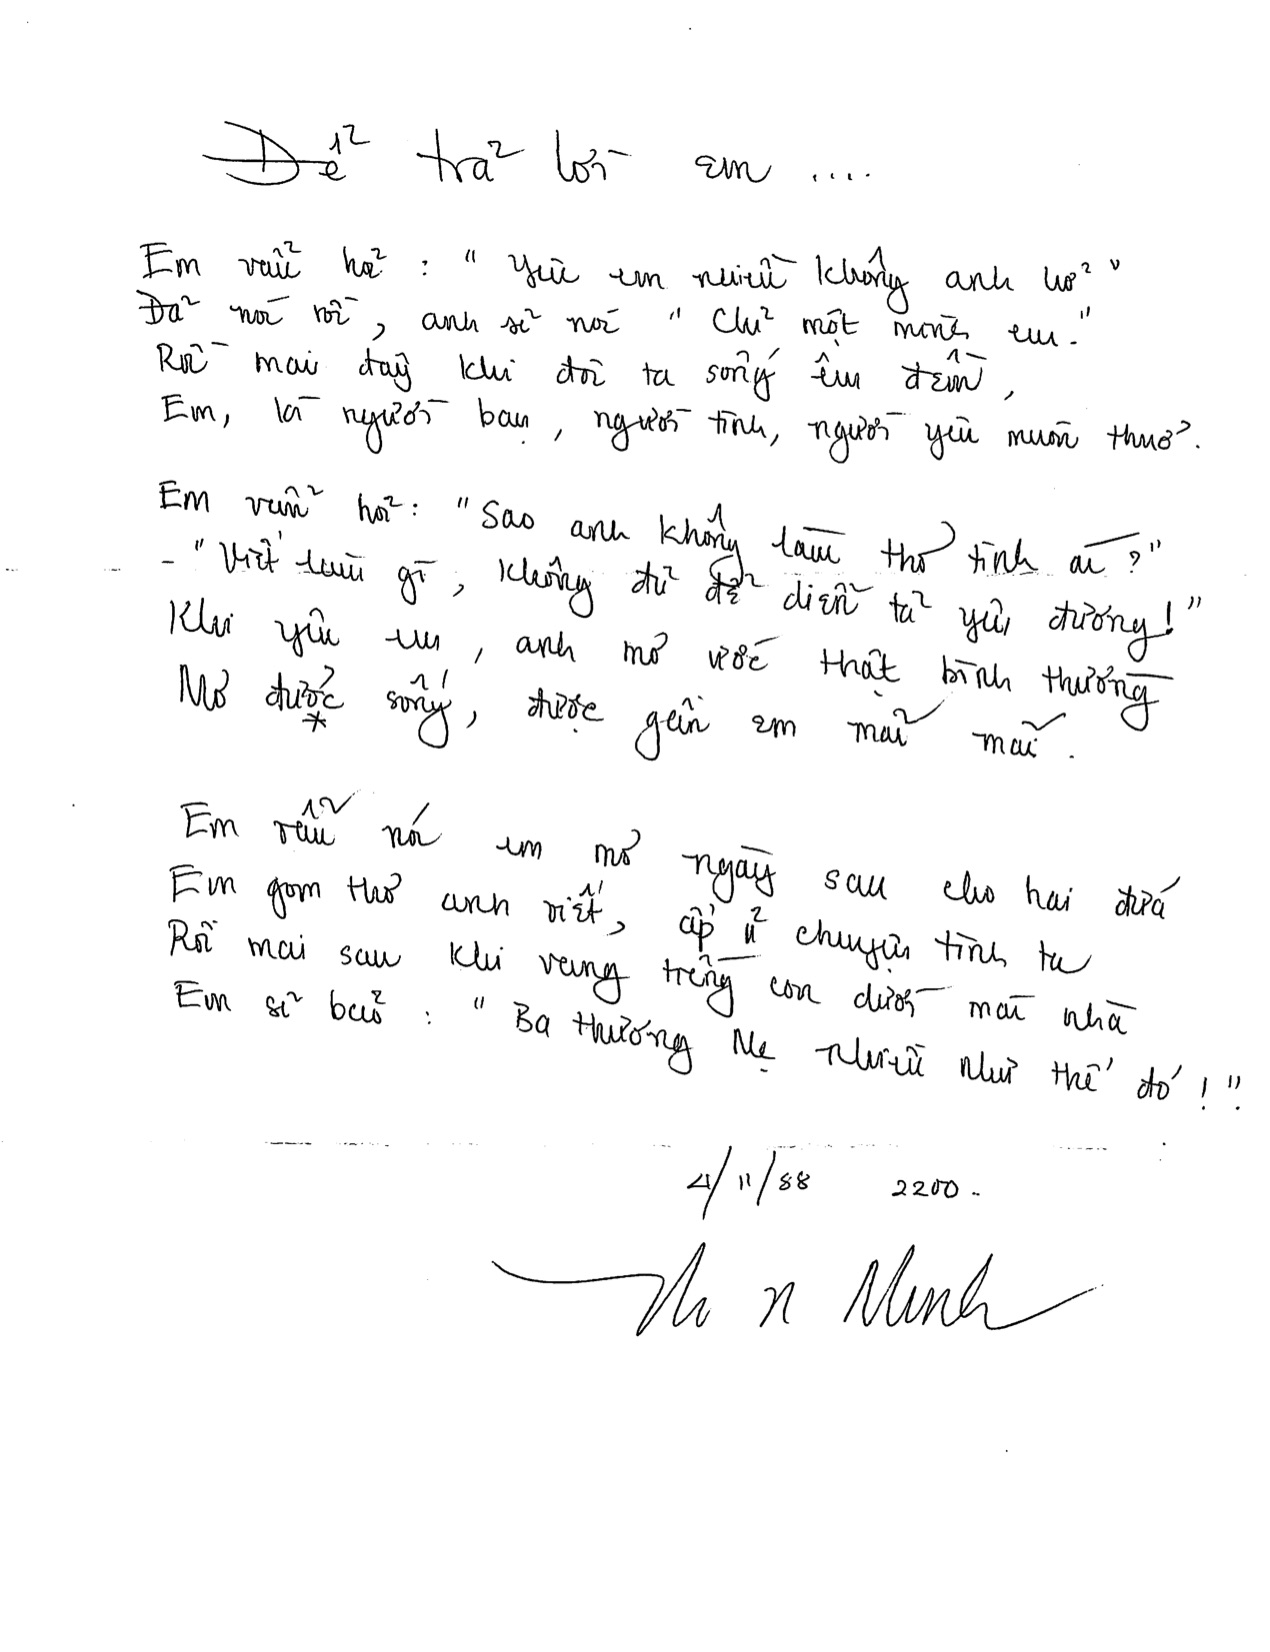 Để trả lời em ....
Em vẫn hỏi : " Yêu em nhiều không anh hở "
Đã nói rồi , anh sẽ nói " Chỉ một mình em. "
Rồi mai đây khi đôi ta sống êm đềm ,
Em, là người bạn , người tình, người yêu muôn thuở .
Em vẫn hỏi : " Sao anh không làm thơ tình ái ? "
- " Viết làm gì , không đủ để diễn tả yêu đương ! "
Khi yêu em , anh mơ ước thật bình thường
Mơ được sống , được gần em mãi mãi .
*
Em vẫn nói em mơ ngày sau cho hai đứa
Em gom thơ anh viết , ấp ủ chuyện tình ta
Rồi mai sau khi vầng trăng con dưới mái nhà
Em sẽ bảo : " Ba thương Mẹ nhiều như thế đó ! "
4/11/88 2200 .
n Minh